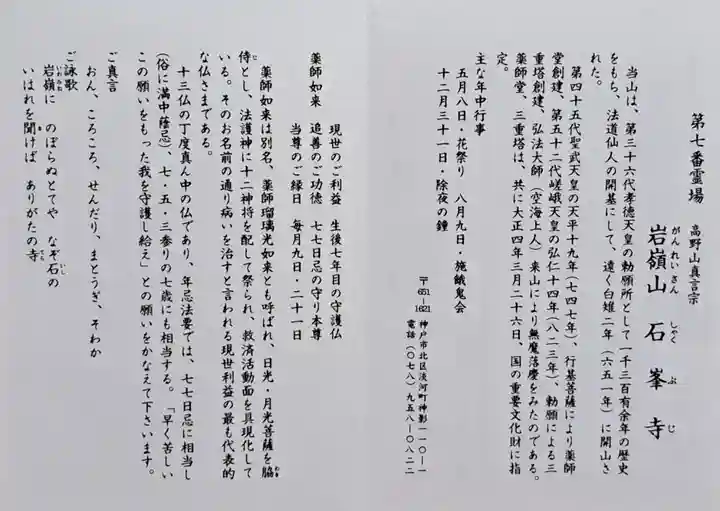 第七番霊場
高野山真言宗
岩嶺山 石峯寺
がんれいさん しゃくぶじ
当山は、第三十六代孝徳天皇の勅願所として一千三百有余年の歴史
をもち、法道仙人の開基にして、遠く白雉二年（六五一年）に開山さ
れた。
第四十五代聖武天皇の天平十九年（七四七年）、行基菩薩により薬師
堂創建、第五十二代嵯峨天皇の弘仁十四年（八二三年）、勅願による三
重塔創建、弘法大師（空海上人）来山により無魔落慶をみたのである。
薬師堂、三重塔は、共に大正四年三月二十六日、国の重要文化財に指
定。
主な年中行事
五月八日・花祭り 八月九日・施餓鬼会
十二月三十一日・除夜の鐘
〒651-1621 神戸市北区淡河町神影一一〇-一
電話（〇七八）九五八-〇八二二
現世のご利益 生後七年目の守護仏
薬師如来 追善のご功徳 七七日忌の守り本尊
当尊のご縁日 毎月九日・二十一日
薬師如来は別名、薬師瑠璃光如来とも呼ばれ、日光・月光菩薩を脇
わき
侍とし、法護神に十二神将を配して祭られ、救済活動面を具現化して
じ
いる。そのお名前の通り病いを治すと言われる現世利益の最も代表的
な仏さまである。
十三仏の丁度真ん中の仏であり、年忌法要では、七七日忌に相当し
（俗に満中蔭忌）、七・五・三参りの七歳にも相当する。「早く苦しい
この願いをもった我を守護し給え」との願いをかなえて下さいます。
ご真言
おん、ころころ、せんだり、まとうぎ、そわか
ご詠歌
岩嶺に のぼらぬとてや なぞ石の
いわみね いし
いはれを聞けば ありがたの寺
き てら